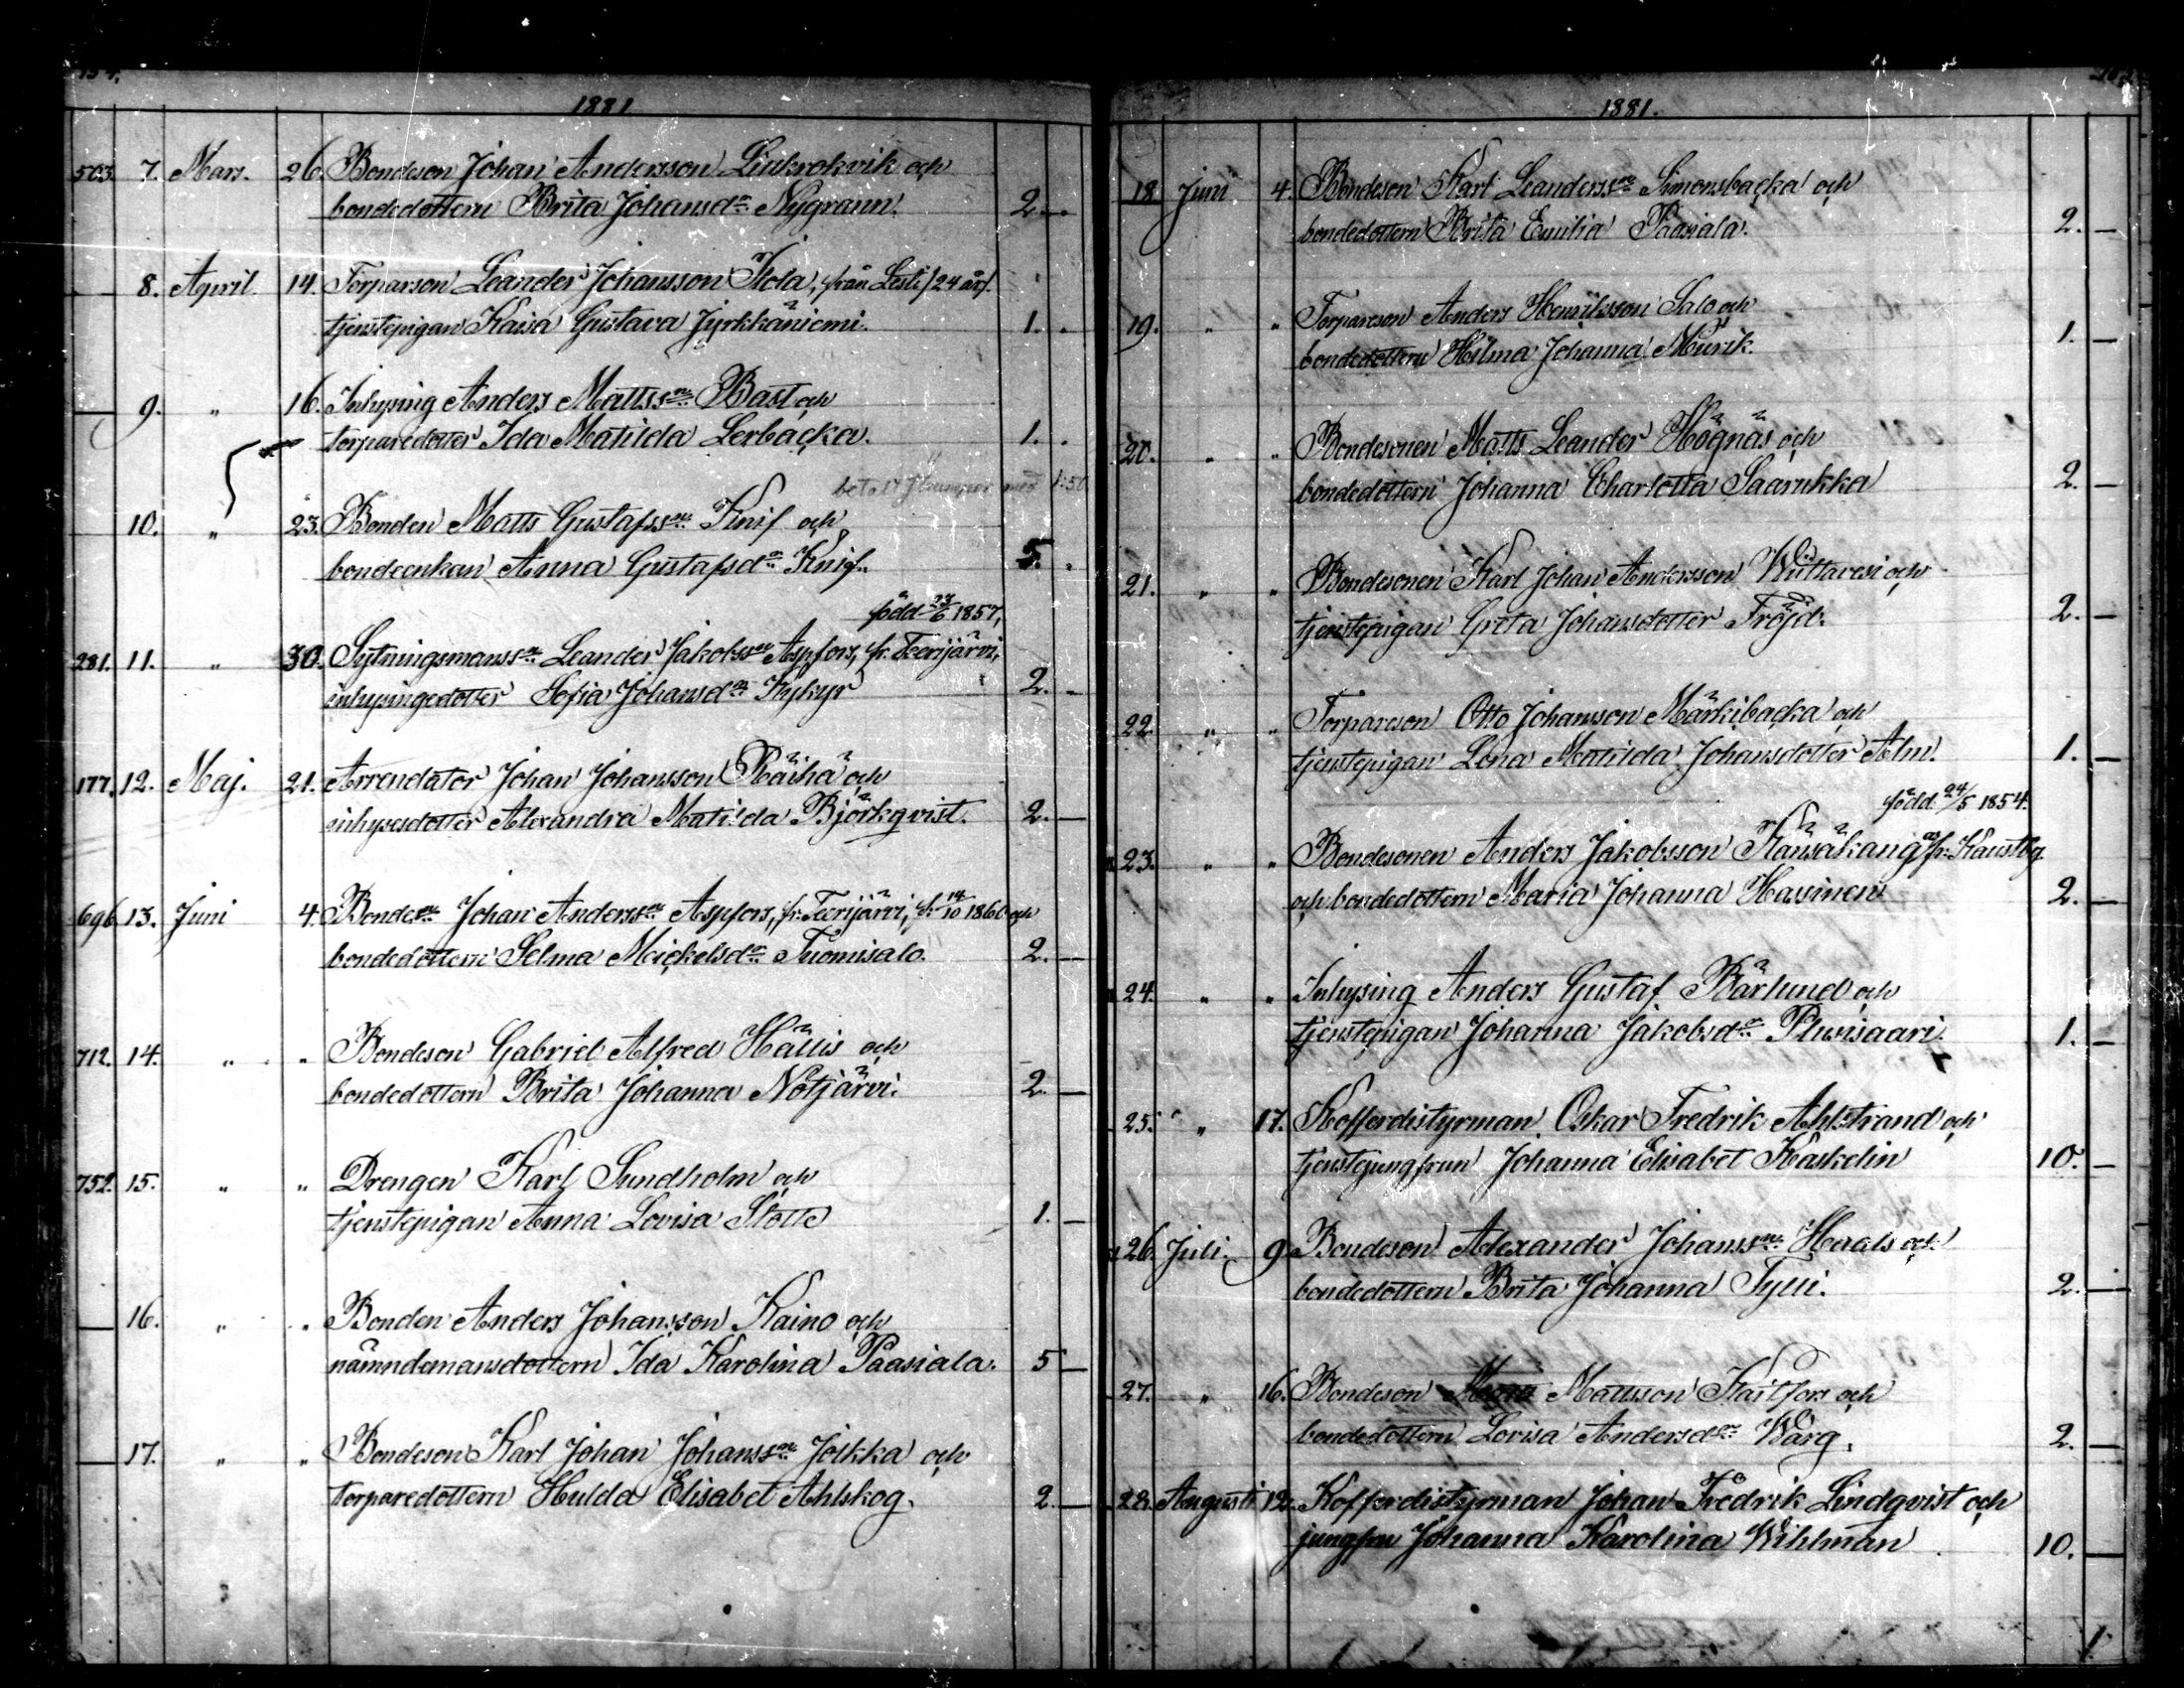 1881
503. 7. Mars. 26. Bondeson Johan Andersson Linkrokvik och
bondedottern Brita Johansdr Nygrann. 2. -
8. April 14. Torparson Leander Johansson Flola, från Lesti /24 år/.
tjenstepigan Kaisa Gustava Jyrkkäniemi. 1. -
9. " 16. Inhysing Anders Mattssn Bast och
torparedotter Ida Matilda Lerbacka. 1. -
1:50
10. " 23. Bonden Matts Gustafssn Knif och
bondeenkan Anna Gustafsdr Knif. 5. -
född 23/6 1857,
281. 11. " 30. Sytningsmanssn Leander Jakobssn Aspfors, fr. Teerijärvi,
inhysingedotter Sofia Johansdr Kykyr 2. -
177. 12. Maj. 21. Arrendator Johan Johansson Räihä och
inhysesdotter Alexandra Matilda Björkqvist. 2. -
696 13. Juni 4. Bondesn Johan Anderssn Aspfors, fr. Teerijärvi, f. 14/10 1860 och
bondedottern Selma Mickelsdr Tuomisalo. 2. -
712. 14. " " Bondeson Gabriel Alfred Hällis och
bondedottern Brita Johanna Nötjärvi. 2. -
752. 15. " " Drengen Karl Sundholm och
tjenstepigan Anna Lovisa Slotte 1. -
16. " " Bonden Anders Johansson Kaino och
nämndemansdottern Ida Karolina Paasiala. 5 -
17. " " Bondeson Karl Johan Johanssn Jolkka och
torparedottern Hulda Elisabet Ahlskog. 2. -
1881.
18. Juni 4. Bondeson Karl Leanderssn Simonsbacka och
bondedottern Brita Emilia Paasiala. 2. -
19. " " Torpareson Anders Henriksson Salo och
bondedottern Hilma Johanna Murik. 1. -
20. " " Bondesonen Matts Leander Högnäs och
bondedottern Johanna Charlotta Saarukka 2. -
21. " " Bondesonen Karl Johan Andersson Wiittavesi och
tjenstepigan Greta Johansdotter Fröjd. 2. -
22. " " Torpareson Otto Johansson Märkibacka och
tjenstepigan Lena Matilda Johansdotter Alm. 1. -
född 24/5 1854.
23. " " Bondesonen Anders Jakobsson Känsäkangas fr. Kaustby
och bondedottern Maria Johanna Hassinen 2. -
24. " " Inhysing Anders Gustaf Bärlund och
tjenstepigan Johanna Jakobsdr Pluusaari. 1. -
25. " 17. Kofferdistyrman Oskar Fredrik Ahlstrand och
tjenstejungfrun Johanna Elisabet Kaskelin 10. -
26. Juli. 9. Bondeson Alexander Johanssn Heals och
bondedottern Brita Johanna Tyni. 2. -
27. " 16. Bondeson Mattsson Kaitfors och
bondedottern Lovisa Andersdr Warg. 2. -
28. Augusti 12. Kofferdistyrman Johan Fredrik Lindqvist och
jungfru Johanna Karolina Wihlman 10. -